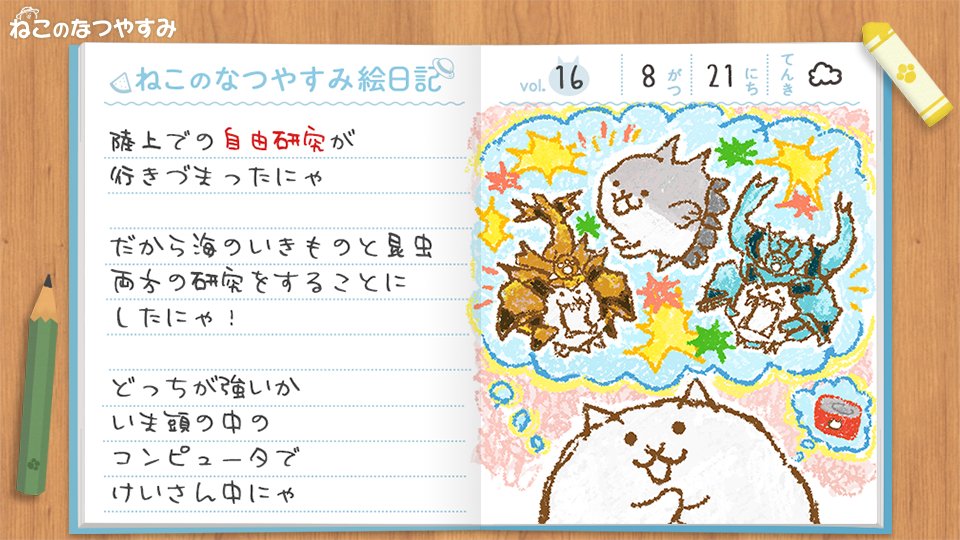 ねこのなつやすみ
ねこのなつやすみ絵日記
陸上での自由研究が
行きづまったにゃ
だから海のいきものと昆虫
両方の研究をすることに
したにゃ!
どっちが強いか
いま頭の中の
コンピュータで
けいさん中にゃ
vol. 16 8 がつ 21 にち てんき